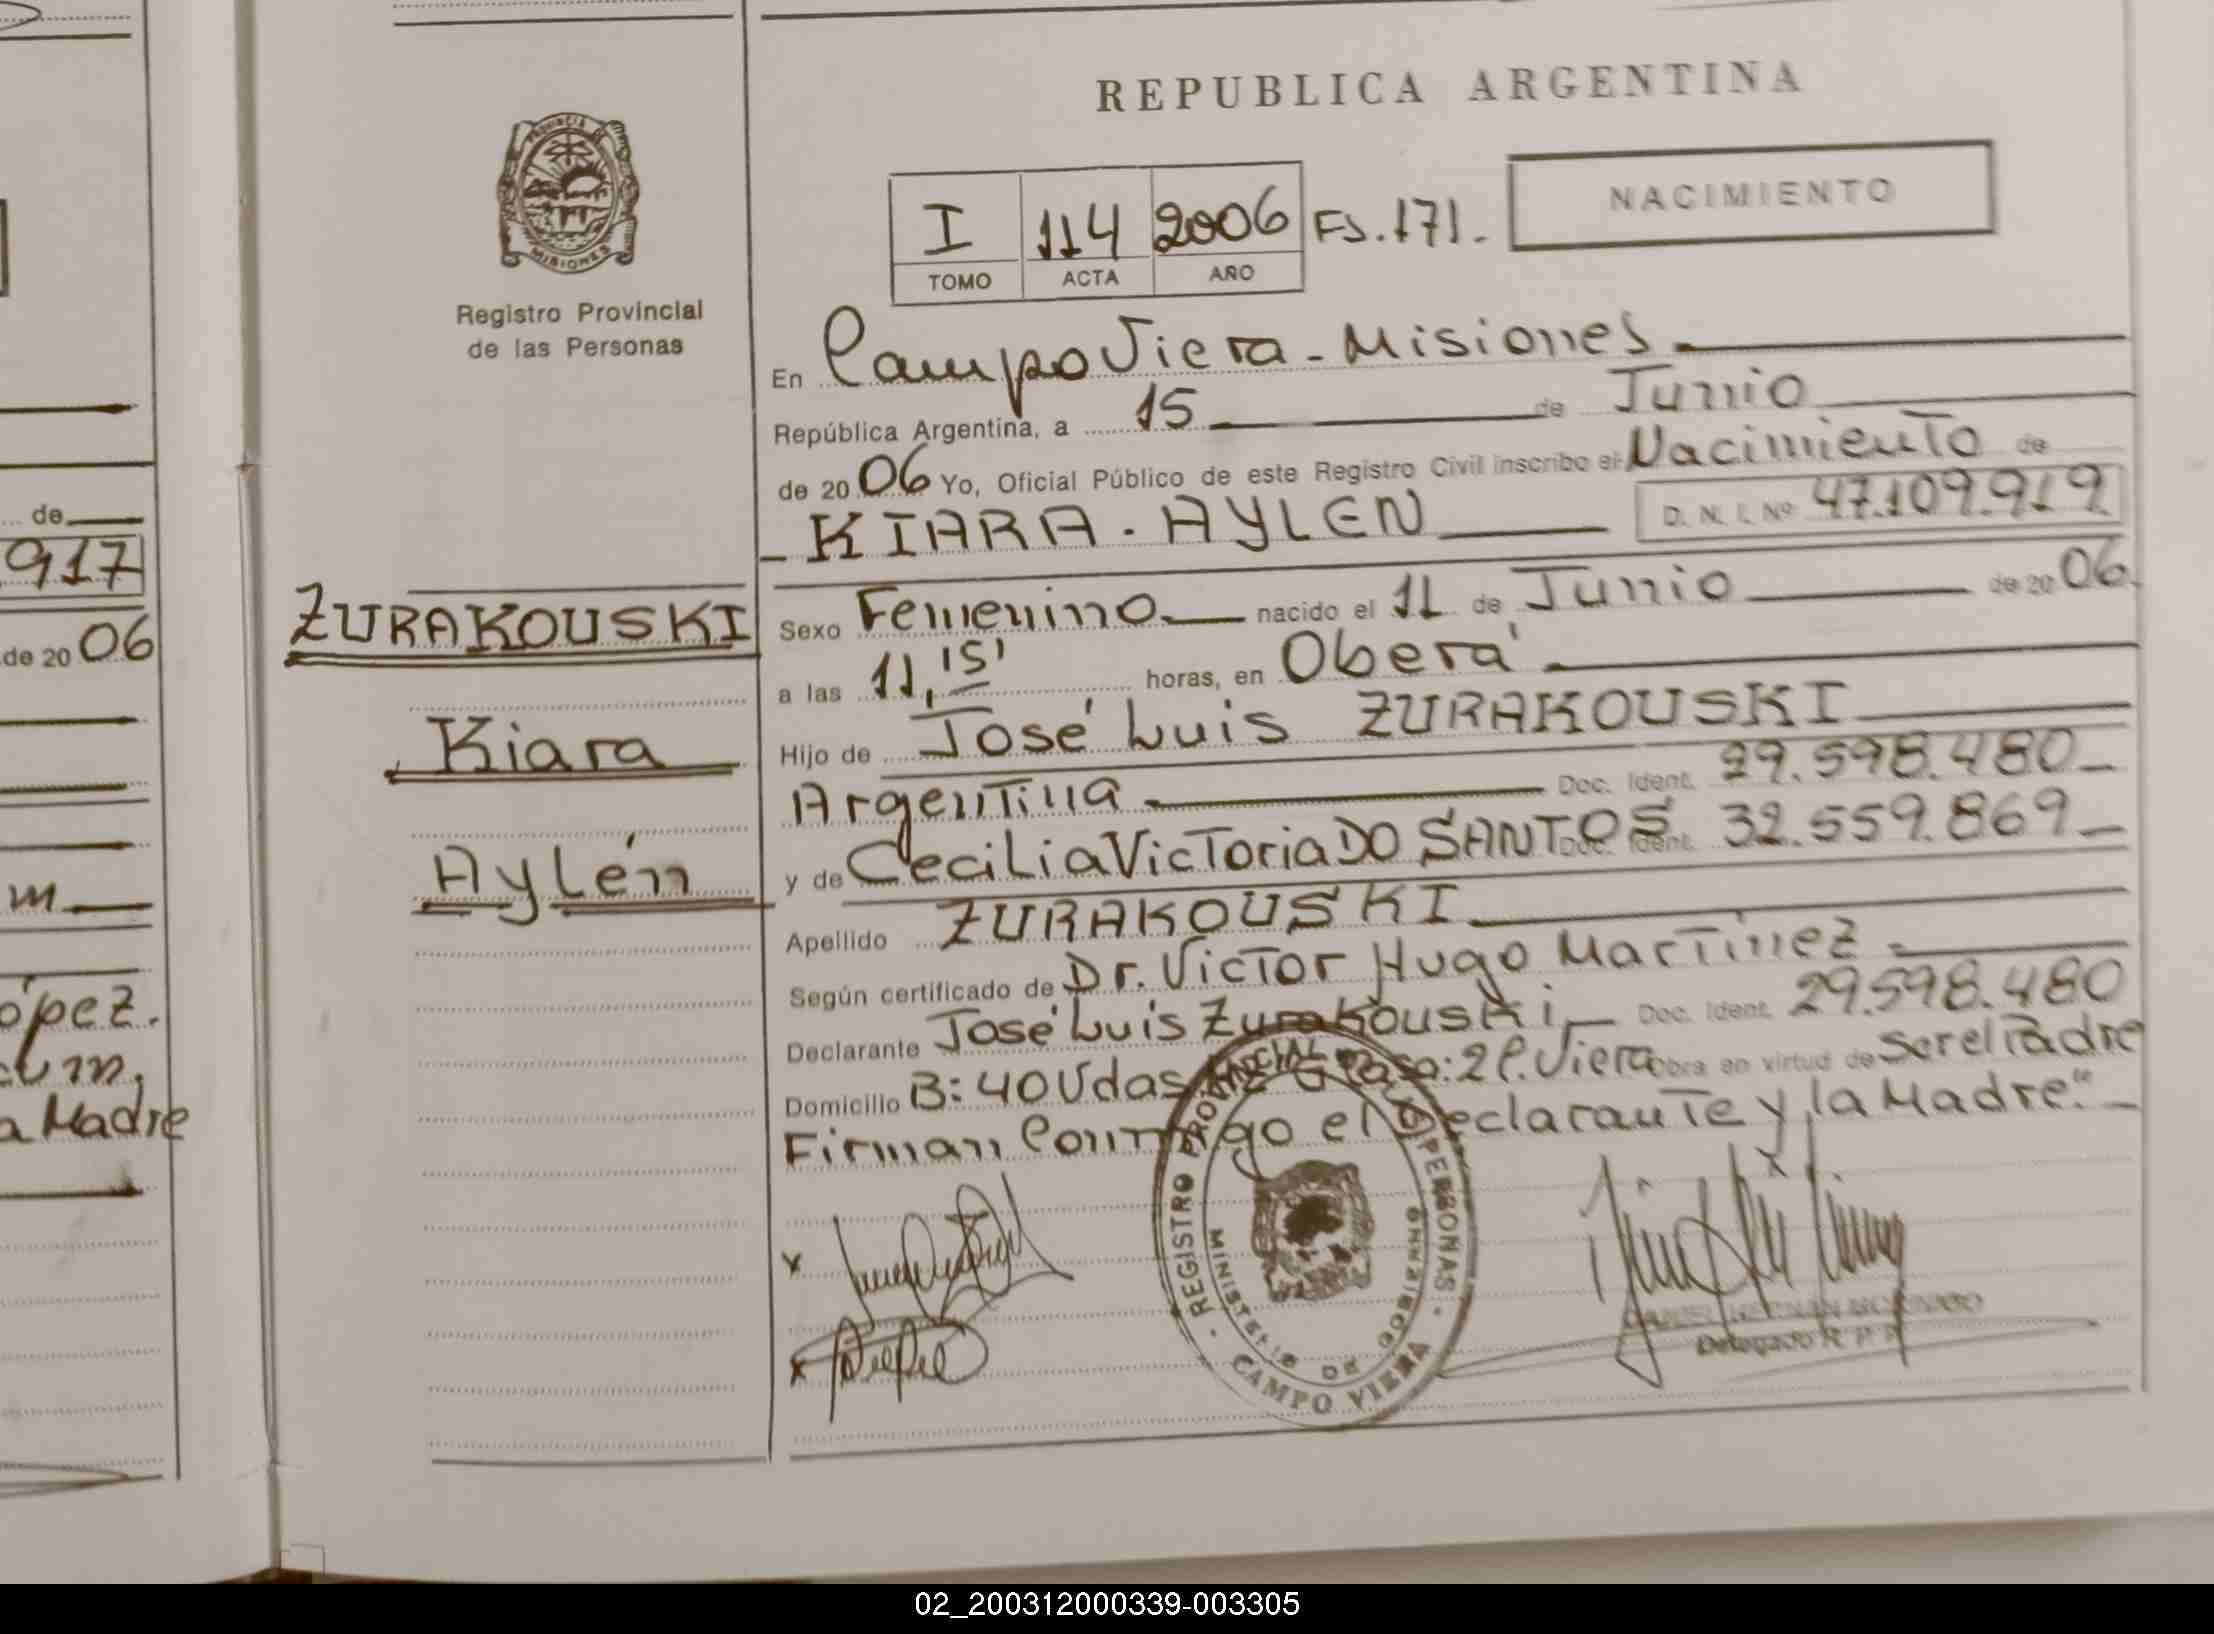 REPUBLICA ARGENTINA
PROVINCIA DE
MISIONES
Registro Provincial
de las Personas
I 114 2006 FS.171.
TOMO ACTA AÑO
NACIMIENTO
En Campo Viera - Misiones
República Argentina, a 15 de Junio
de 20 06 Yo, Oficial Público de este Registro Civil inscribo el Nacimiento de
KIARA . AYLEN D. N. I. Nº 47.109.919
ZURAKOUSKI
Kiara
Aylén
Sexo Femenino nacido el 11 de Junio de 20 06.
a las 11,15' horas, en Oberá
Hijo de José Luis ZURAKOUSKI
Argentina Doc. Ident. 29.598.480
y de Cecilia Victoria DO SANTOS Doc. Ident. 32.559.869
Apellido ZURAKOUSKI
Según certificado de Dr. Victor Hugo Martinez
Declarante José Luis Zurakouski Doc. Ident. 29.598.480
Domicilio B: 40 Vdas Casa: 2 C. Viera Obra en virtud de ser el Padre
Firman Conmigo el Declarante y la Madre."
REGISTRO PROVINCIAL PERSONAS
MINISTERIO DE GOBIERNO
CAMPO VIERA
Delegado R P P
de
917
de 20 06
m
ópez.
a Madre
02_200312000339-003305